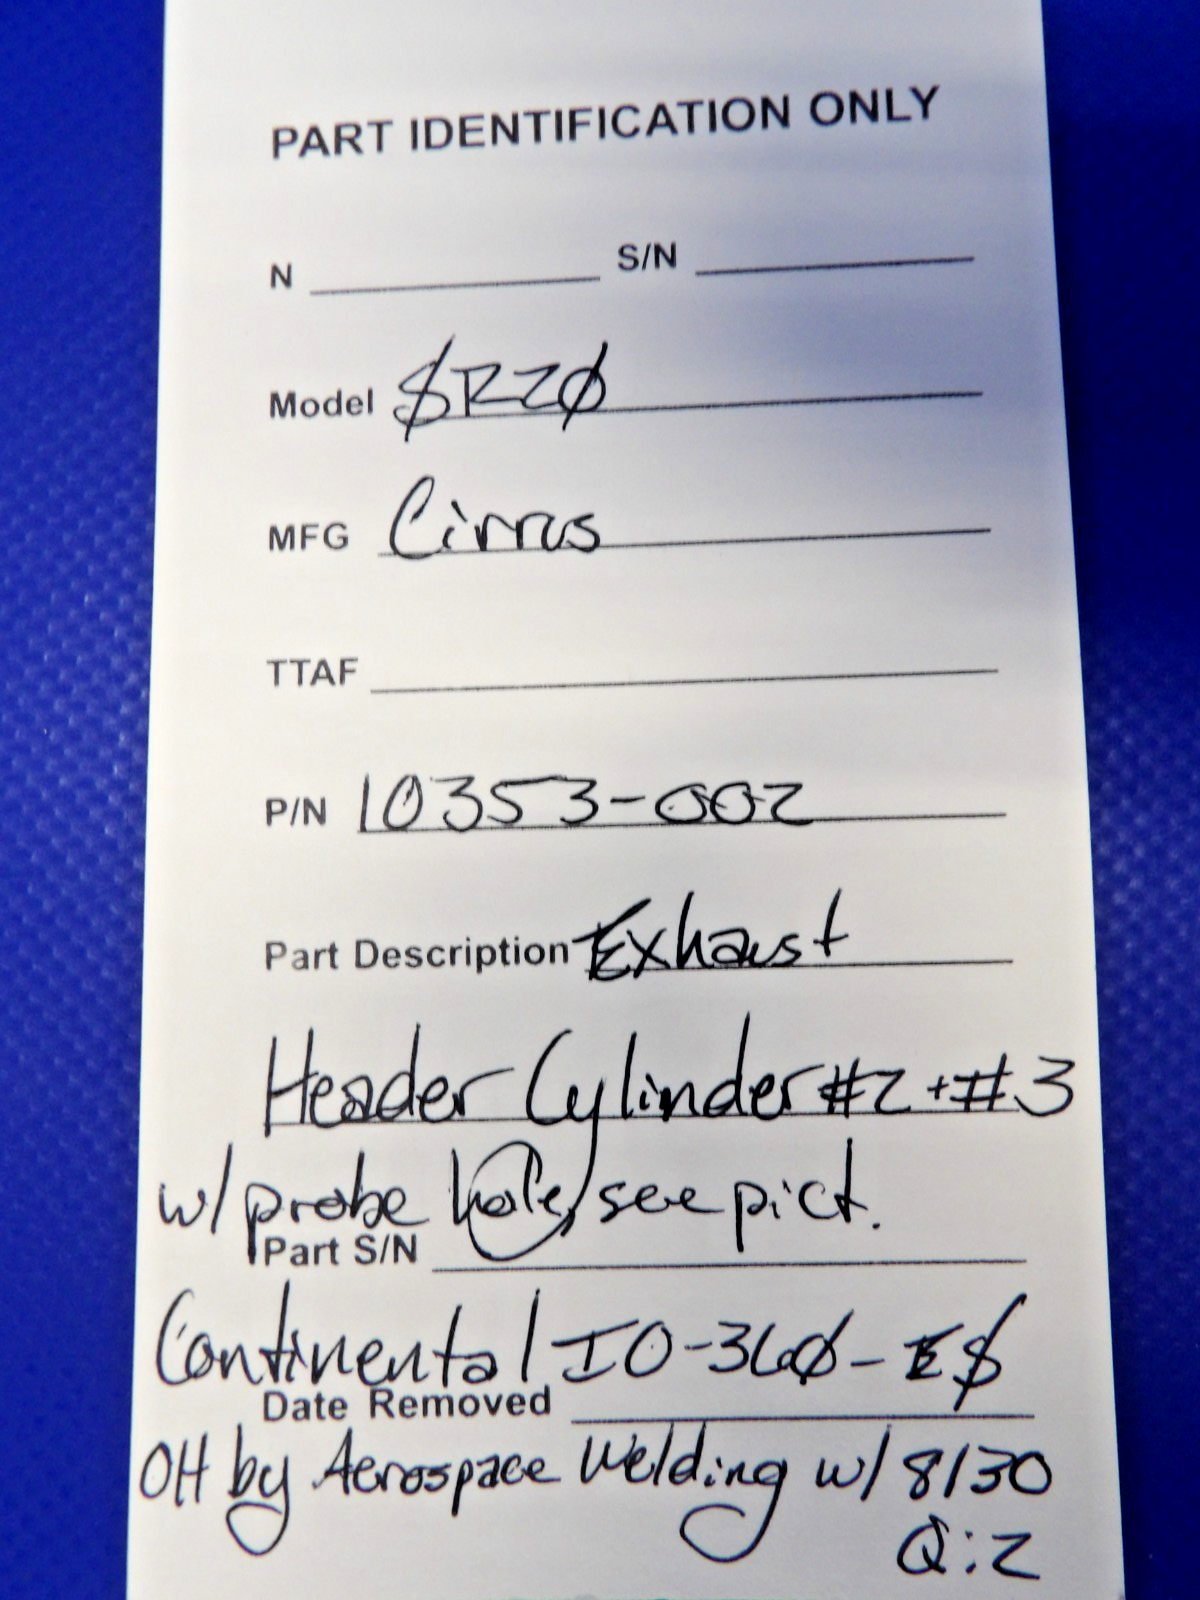 PART IDENTIFICATION ONLY
N S/N
Model SR20
MFG Cirrus
TTAF
P/N 10353-002
Part Description Exhaust
Header Cylinder #2 + #3
w/ probe hole, see pict.
Part S/N
Continental IO-360-ES
Date Removed
OH by Aerospace Welding w/ 8130
Q:2